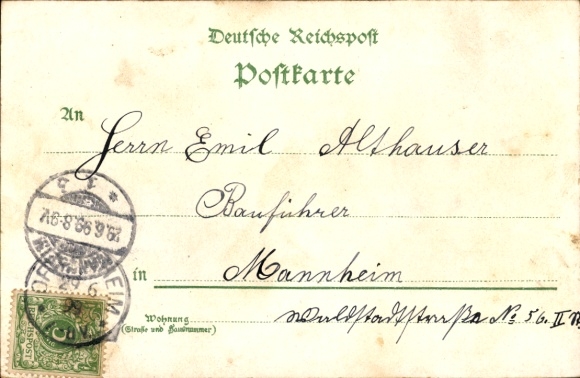 Deutsche Reichspost
Postkarte
An
Herrn Emil Althauser
Bauführer
in Mannheim
Wohnung
(Straße und Hausnummer)
Waldstadtstraße No 56. II
29.6.99.8-9V.
MANNHEIM
29 6
REICHSPOST
5